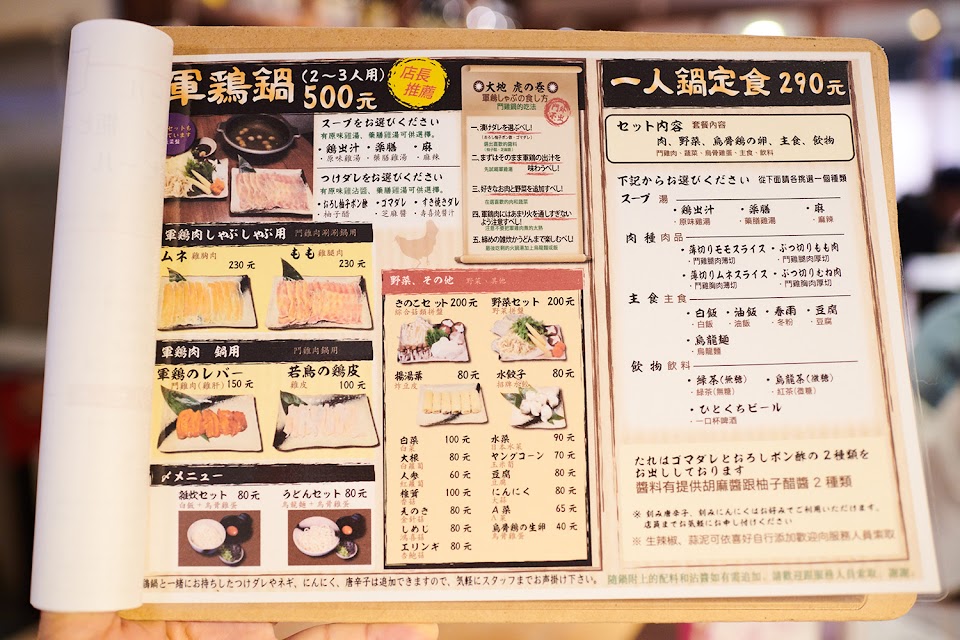 軍鶏鍋
(2～3人用)
500元
店長
推薦
セットも
スープをお選びください
有原味雞湯、藥膳雞湯可供選擇。
・鶏出汁
・薬膳
・麻
・原味雞湯
・藥膳雞湯
・麻辣
つけダレをお選びください
有原味雞沾醬、藥膳雞湯可供選擇。
・おろしポン酢
・ゴマダレ
・すき焼きダレ
・柚子醋
・芝麻醬
・壽喜燒醬汁
大地 虎の巻
軍鶏しゃぶの食し方
鬥雞鍋的吃法
門外不出
一、漬けダレを選ぶべし!
選出喜歡的醬料
二、まずはそのまま軍鶏の出汁を
味わうべし!
先試喝軍雞湯
三、好きなお肉と野菜を追加すべし!
在選喜歡的肉和蔬菜
四、軍鶏肉にはあまり火を通しすぎない
よう注意すべし!
注意不要把軍雞肉煮的太熟
五、締めの雑炊かうどんまで楽しむべし!
軍鶏肉しゃぶしゃぶ用
鬥雞肉涮涮鍋用
ムネ 雞胸肉
230元
もも 雞腿肉
230元
軍鶏肉 鍋用
鬥雞肉鍋用
軍鶏のレバー
鬥雞肉(雞肝) 150元
若鳥の鶏皮
雞皮 100元
〆メニュー
雑炊セット 80元
白飯+烏骨雞蛋
うどんセット 80元
烏龍麵+烏骨雞蛋
野菜、その他
野菜、其他
きのこセット 200元
綜合菇類拼盤
野菜セット 200元
野菜拼盤
揚湯葉 80元
炸豆皮
水餃子 80元
招牌水餃
白菜 100元
白菜
大根 80元
白蘿蔔
人参 60元
紅蘿蔔
椎茸 100元
香菇
えのき 80元
金針菇
しめじ 80元
鴻喜菇
エリンギ 80元
杏鮑菇
水菜 90元
日本水菜
ヤングコーン 70元
玉米筍
豆腐 80元
豆腐
にんにく 80元
大蒜
A菜 65元
A菜
烏骨鶏の生卵 40元
烏骨雞蛋
鶏鍋と一緒にお持ちしたつけダレやネギ、にんにく、唐辛子は追加できますので、気軽にスタッフまでお声掛け下さい。
隨鍋附上的配料和沾醬如有需追加、請歡迎跟服務人員索取、謝謝。
一人鍋定食 290元
セット内容 套餐內容
肉、野菜、烏骨鶏の卵、主食、飲物
鬥雞肉、蔬菜、烏骨雞蛋、主食、飲料
下記からお選びください 從下面請各挑選一個種類
スープ 湯
・鶏出汁
・薬膳
・麻
・原味雞湯
・藥膳雞湯
・麻辣
肉種 肉品
・薄切りモモスライス
・ぶつ切りもも肉
・鬥雞腿肉薄切
・鬥雞腿肉厚切
・薄切りムネスライス
・ぶつ切りむね肉
・鬥雞胸肉薄切
・鬥雞胸肉厚切
主食 主食
・白飯
・油飯
・春雨
・豆腐
・白飯
・油飯
・冬粉
・豆腐
・烏龍麺
・烏龍麵
飲物 飲料
・緑茶(無糖)
・烏龍茶(微糖)
・綠茶(無糖)
・紅茶(微糖)
・ひとくちビール
・一口杯啤酒
たれはゴマダレとおろしポン酢の2種類を
お出ししております
醬料有提供胡麻醬跟柚子醋醬2種類
※ 刻み唐辛子、刻みにんにくはお好みでご利用いただけます。
店員までお気軽にお申し付けください
※ 生辣椒、蒜泥可依喜好自行添加歡迎向服務人員索取